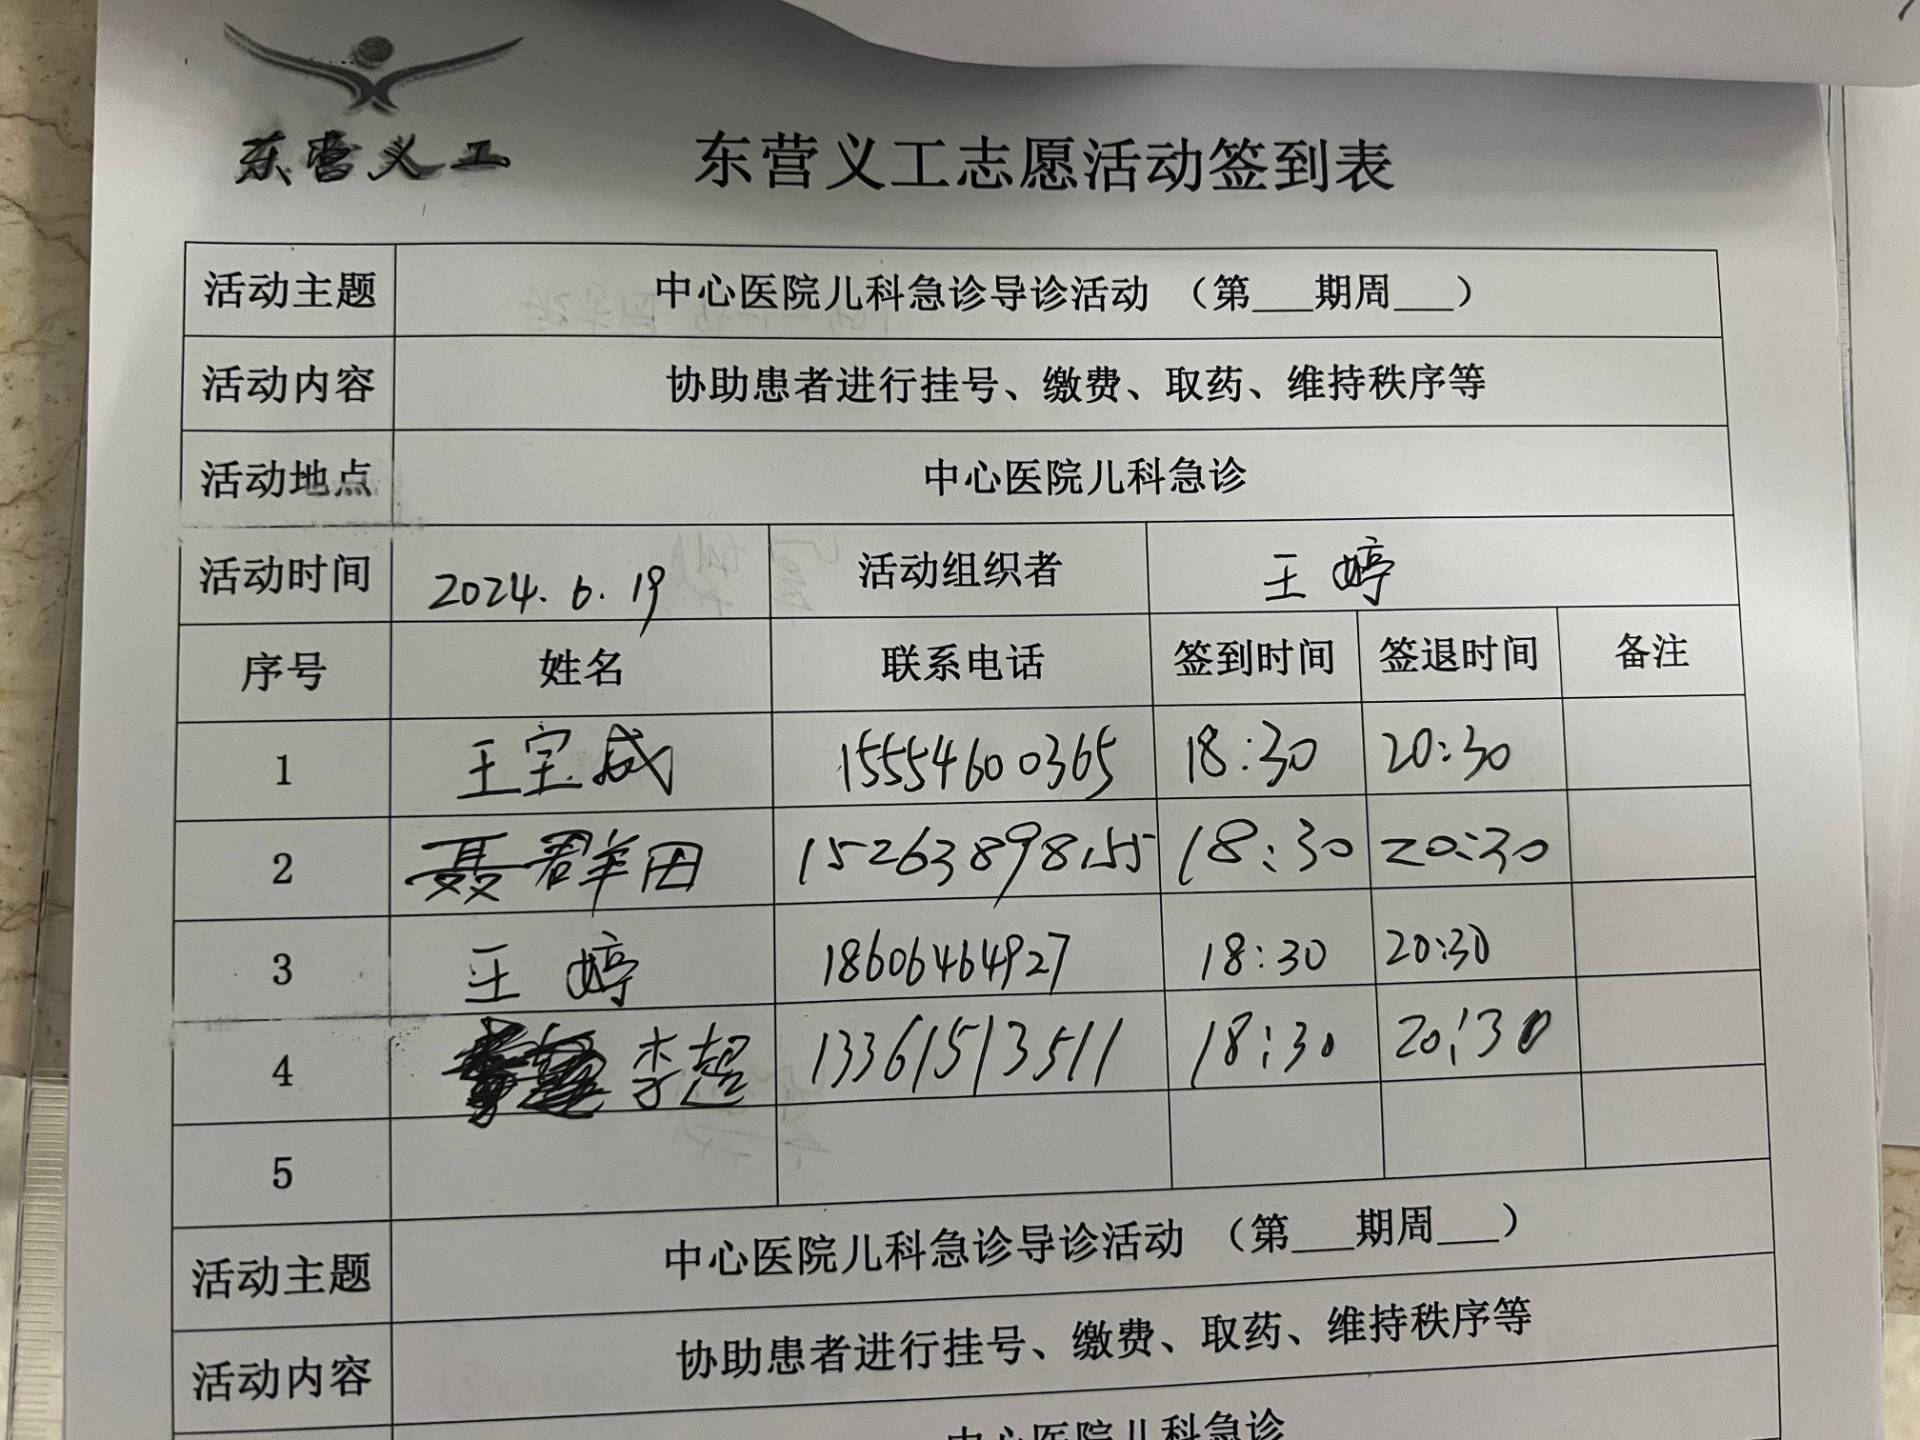 东营义工
东营义工志愿活动签到表
活动主题 中心医院儿科急诊导诊活动 （第___期周___）
活动内容 协助患者进行挂号、缴费、取药、维持秩序等
活动地点 中心医院儿科急诊
活动时间 2024.6.19 活动组织者 王婷
序号 姓名 联系电话 签到时间 签退时间 备注
1 王宝成 15554600365 18:30 20:30
2 聂群田 15263898155 18:30 20:30
3 王婷 18606464927 18:30 20:30
4 李超 13361513511 18:30 20:30
5
活动主题 中心医院儿科急诊导诊活动 （第___期周___）
活动内容 协助患者进行挂号、缴费、取药、维持秩序等
中心医院儿科急诊